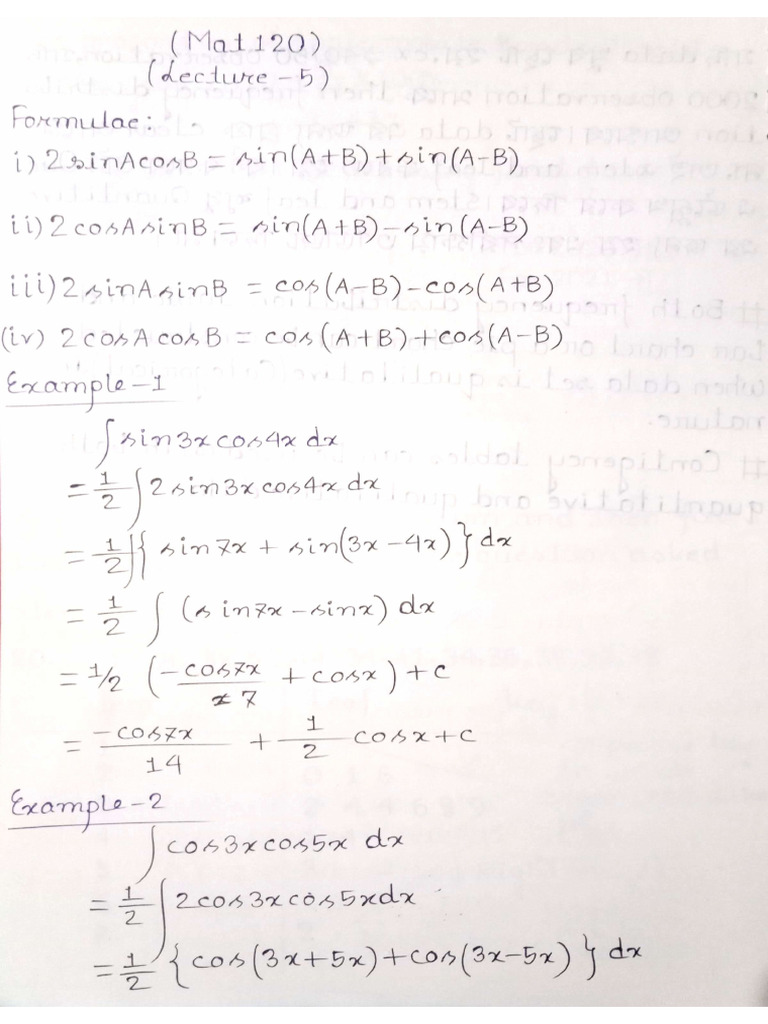 (Mat120)
(Lecture-5)
Formulae:
i) 2sinAcosB = sin(A+B)+sin(A-B)
ii) 2cosAsinB = sin(A+B)-sin(A-B)
iii) 2sinAsinB = cos(A-B)-cos(A+B)
(iv) 2cosAcosB = cos(A+B)+cos(A-B)
Example-1
∫sin3xcos4x dx
= 1/2 ∫2sin3xcos4x dx
= 1/2 ∫{sin7x + sin(3x-4x)}dx
= 1/2 ∫ (sin7x-sinx) dx
= 1/2 (-cos7x/7 + cosx)+c
= -cos7x/14 + 1/2 cosx+c
Example-2
∫cos3xcos5x dx
= 1/2 ∫2cos3xcos5xdx
= 1/2 ∫{cos(3x+5x)+cos(3x-5x)}dx